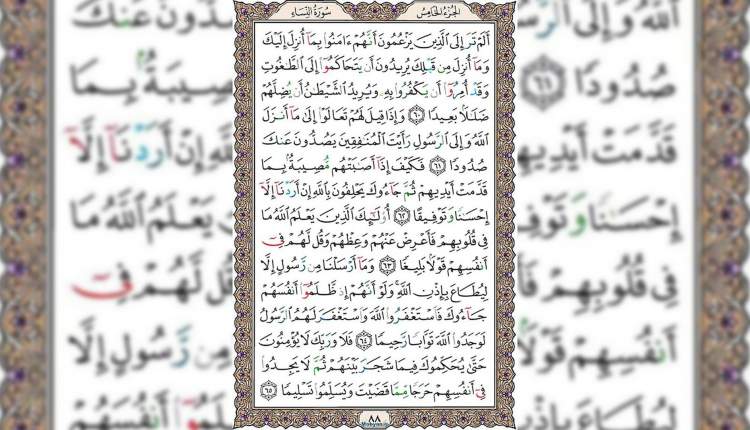 الجزء الخامس سورة النساء
أَلَمْ تَرَ إِلَى ٱلَّذِينَ يَزْعُمُونَ أَنَّهُمْ ءَامَنُوا۟ بِمَآ أُنزِلَ إِلَيْكَ
وَمَآ أُنزِلَ مِن قَبْلِكَ يُرِيدُونَ أَن يَتَحَاكَمُوٓا۟ إِلَى ٱلطَّٰغُوتِ
وَقَدْ أُمِرُوٓا۟ أَن يَكْفُرُوا۟ بِهِۦ وَيُرِيدُ ٱلشَّيْطَٰنُ أَن يُضِلَّهُمْ
ضَلَٰلًۢا بَعِيدًا ٦٠ وَإِذَا قِيلَ لَهُمْ تَعَالَوْا۟ إِلَىٰ مَآ أَنزَلَ
ٱللَّهُ وَإِلَى ٱلرَّسُولِ رَأَيْتَ ٱلْمُنَٰفِقِينَ يَصُدُّونَ عَنكَ
صُدُودًا ٦١ فَكَيْفَ إِذَآ أَصَٰبَتْهُم مُّصِيبَةٌۢ بِمَا
قَدَّمَتْ أَيْدِيهِمْ ثُمَّ جَآءُوكَ يَحْلِفُونَ بِٱللَّهِ إِنْ أَرَدْنَآ إِلَّآ
إِحْسَٰنًا وَتَوْفِيقًا ٦٢ أُو۟لَٰٓئِكَ ٱلَّذِينَ يَعْلَمُ ٱللَّهُ مَا
فِى قُلُوبِهِمْ فَأَعْرِضْ عَنْهُمْ وَعِظْهُمْ وَقُل لَّهُمْ فِىٓ
أَنفُسِهِمْ قَوْلًۢا بَلِيغًا ٦٣ وَمَآ أَرْسَلْنَا مِن رَّسُولٍ إِلَّا
لِيُطَاعَ بِإِذْنِ ٱللَّهِ وَلَوْ أَنَّهُمْ إِذ ظَّلَمُوٓا۟ أَنفُسَهُمْ
جَآءُوكَ فَٱسْتَغْفَرُوا۟ ٱللَّهَ وَٱسْتَغْفَرَ لَهُمُ ٱلرَّسُولُ
لَوَجَدُوا۟ ٱللَّهَ تَوَّابًا رَّحِيمًا ٦٤ فَلَا وَرَبِّكَ لَا يُؤْمِنُونَ
حَتَّىٰ يُحَكِّمُوكَ فِيمَا شَجَرَ بَيْنَهُمْ ثُمَّ لَا يَجِدُوا۟
فِىٓ أَنفُسِهِمْ حَرَجًا مِّمَّا قَضَيْتَ وَيُسَلِّمُوا۟ تَسْلِيمًا ٦٥
٨٨